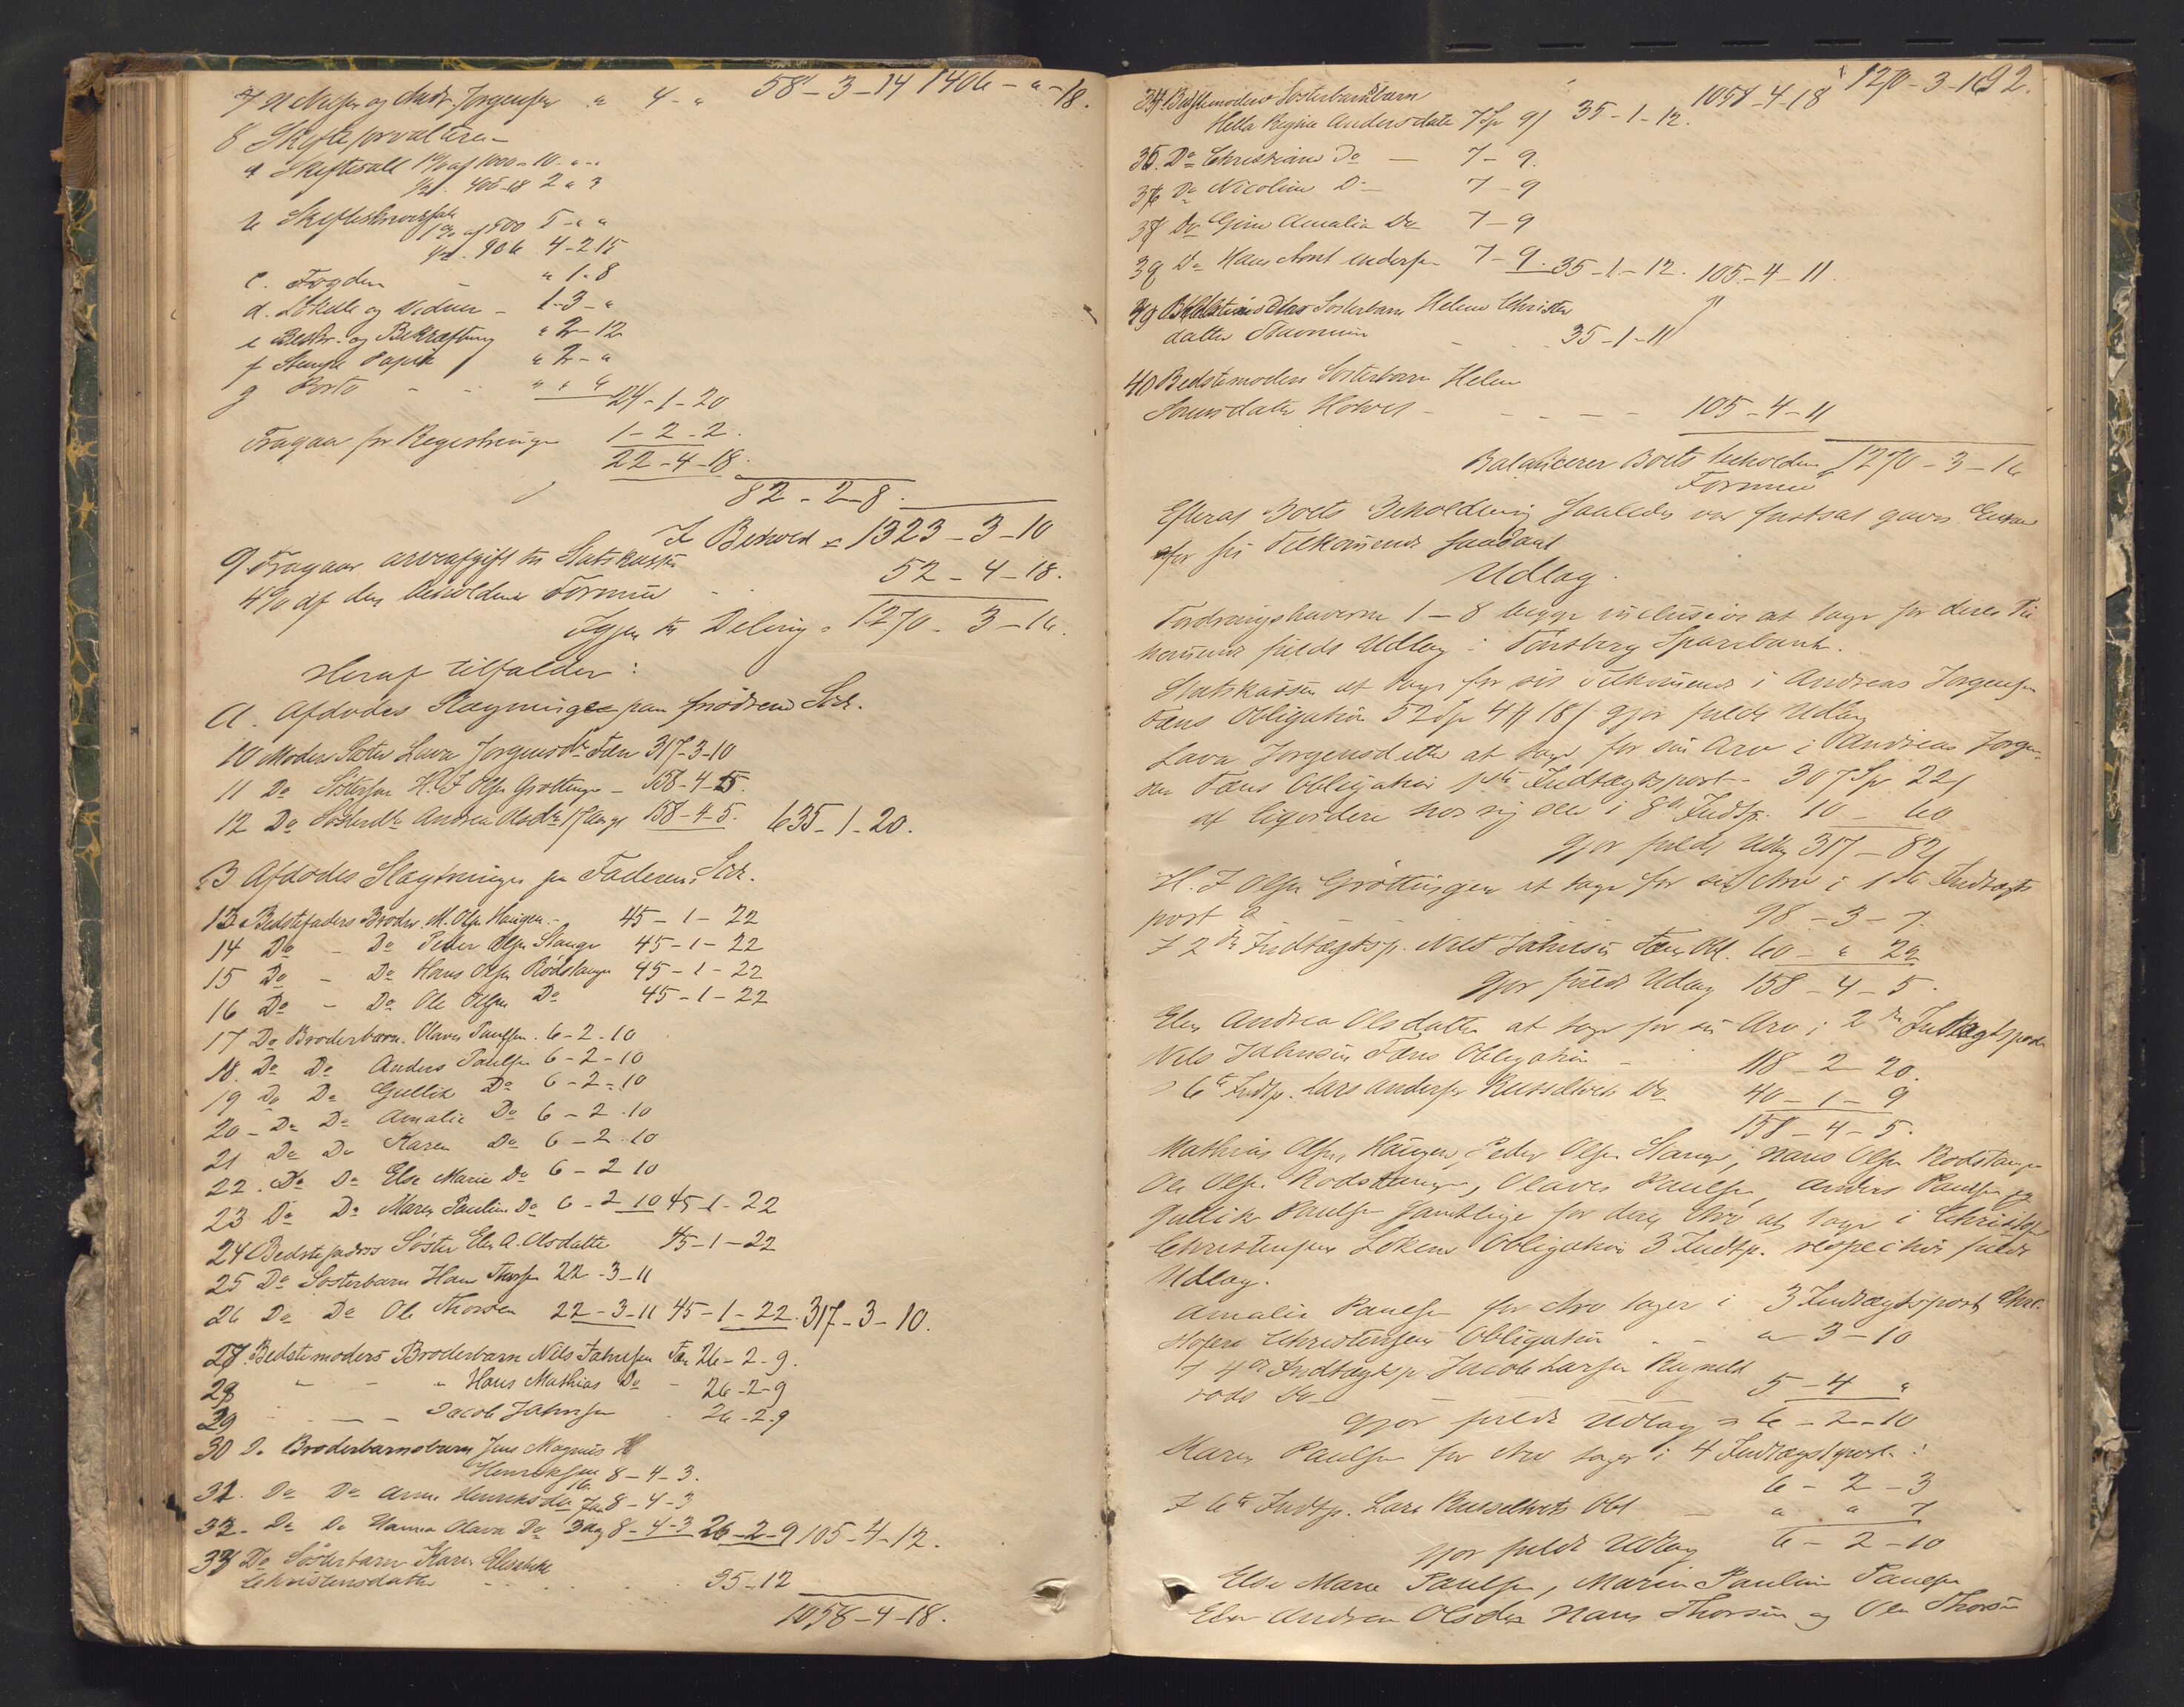 7 N Nilsen og Andr. Jorgensen " 4 - " 58 - 3 - 14 1406 - " - 18.
8 Skifteforvalteren -
a Skiftesall 1 % af 1000 = 10 - " - "
½ - 406-18 2 " 3
b Skifteskriver
1 % af 500 5 - " "
½ - 906 4 - 2 15
c. Fogden - " 1 - 8
d. Lokale og Vidner - 1 - 3 - "
e Beskr. og Bekræftning " 2 - 12
f Stemplet Papir " 2 - "
g Porto - - " " 6 24 - 1 - 20
Fragaar for Registreringen 1 - 2 - 2.
22 - 4 - 18.
82 - 2 - 8.
I Behold = 1323 - 3 - 10
9 Fragaar arveafgift til Statskassen
4 % af den beholdne Formue - 52 - 4 - 18.
Igjen til Deling = 1270 - 3 - 16.
Heraf tilfalder:
A. Afdødes Slægtninge paa Mødrene Side.
10 Moders Søster Lava Jorgensdtr Fæn 317 - 3 - 10
11 Do Søstersøn H. J Olsen Grøttingen - 158 - 4 - 5.
12 Do Søsterdtr Andrea Olsdtr Stange 158 - 4 - 5. 635 - 1 - 20.
B Afdødes Slægtninge paa Faderens Side.
13 Bedstefaders Broder M. Olsen Haugen - 45 - 1 - 22
14 Do - Do Peder Olsen Stange 45 - 1 - 22
15 Do - Do Hans Olsen Rødstangen 45 - 1 - 22
16 Do - Do Ole Olsen Do 45 - 1 - 22
17 Do Broderbarn Olaves Paulsen. 6 - 2 - 10
18. Do Do Anders Paulsen 6 - 2 - 10
19 Do Do Gullik Do 6 - 2 - 10
20 - Do Do Amalie Do 6 - 2 - 10
21 Do Do Karen Do 6 - 2 - 10
22. Do Do Else Marie Do 6 - 2 10
23 Do Do Maren Pauline Do 6 - 2 10 45 - 1 - 22
24 Bedstefaders Søster Elen A. Olsdatter 45 - 1 - 22
25 Do Søsterbarn Hans Thorsen 22 - 3 - 11
26 Do Do Ole Thorsen 22 - 3 - 11 45 - 1 - 22. 317 - 3 - 10.
27. Bedstemoders Broderbarn Nils Jahnsen Fæn 26 - 2 - 9.
28 " - " Hans Mathias Do - 26 - 2 - 9
29 - - - Jacob Jahnsen - 26 - 2 - 9
30 Do Broderbarnsbarn Jens Magnus H
Henriksen 8 - 4 - 3.
31. Do Do Anne Henriksdtr 8 - 4 - 3
32 - Do Do Hanna Olava Do 8 - 4 - 3 26 - 2 - 9 105 - 4 - 12.
33 Do Søsterbarn Karen Elisabeth
Christensdatter - - - - 35 - 12
1058 - 4 - 18.
92.
1058 - 4 - 18 1270 - 3 - 16
34 Bedstemoders Søsterbarnsbarn
Hella Regine Andersdatter 7 Sp 9 ſ 35 - 1 - 12.
35. Do Christiane Do - 7 - 9.
36 Do Nicoline D - 7 - 9
37 Do Gine Amalia Do 7 - 9
38 Do Hans Arnt Andersen 7 - 9. 35 - 1 - 12. 105 - 4 - 11.
39 Søsterbarn Helene Christen
datter - - 35 - 1 - 11
40 Bedstemoders Søsterbarn Helene
Sørensdatter - - - - - 105 - 4 - 11
Balancerer Boets beholdne 1270 - 3 - 16
Formue
Efterat Boets Beholdning saaledes var fastsat gaves Enhver
for sit Tilkommende saadant
Udlæg.
Fordringshaverne 1 - 8 begge inclusive at tage for deres Til
kommende fulde Udlæg i Tønsberg Sparebank.
Statskassen at tage for sit Tilkommende i Andreas Jorgensen
Fæns Obligation 52 Sp 4 18 ſ gjør fulde Udlæg
Lava Jorgensdatter at tage for sin Arv i Andreas Jorgen
sen Fæns Obligation 1ste Indtægtspost - 307 Sp 22 ſ
at ligvidere hos sig selv i 8de Indtp. 10 - 60
gjør fulde Udlæg 317 - 82 ſ
H. J Olsen Grøttingen at tage for sin Arv i 1ste Indtægts
post 98 - 3 - 7.
I 2den Indtægtsp. Nils Jahnsen Fæns Obl. 60 - " 22
gjør fulde Udlæg 158 - 4 - 5.
Elen Andrea Olsdatter at tage for sin Arv i 2den Indtægtspost
Nils Jahnsen Fæns Obligation - 118 - 2 - 20.
i 6te Indtp. Lars Andersen Do 40 - 1 - 9
158 - 4 - 5.
Mathias Olsen Haugen, Peder Olsen Stange, Hans Olsen Rødstangen
Ole Olsen Rødstangen, Olaves Paulsen, Anders Paulsen og
Gullik Paulsen samtlige for deres Arv at tage i Christoffer
Christensens Løkens Obligation 3 Indtp. respective fulde
Udlæg.
Amalie Paulsen for Arv tager i 3 Indtægtspost Chri-
stofer Christensens Obligation - - " 3 - 10
I 4de Indtægtsp Jacob Larsen
røds Do - - - 5 - 4 "
gjør fulde Udlæg = 6 - 2 - 10
Karen Paulsen for Arv tager i 4 Indtægtspost:
6 - 2 - 3
I 6te Indtp. Lars Obl - " " 7
gjør fulde Udlæg 6 - 2 - 10
Else Marie Paulsen, Maren Pauline Paulsen
Elen Andrea Olsdtr Hans Thorsen og Ole Thorsen